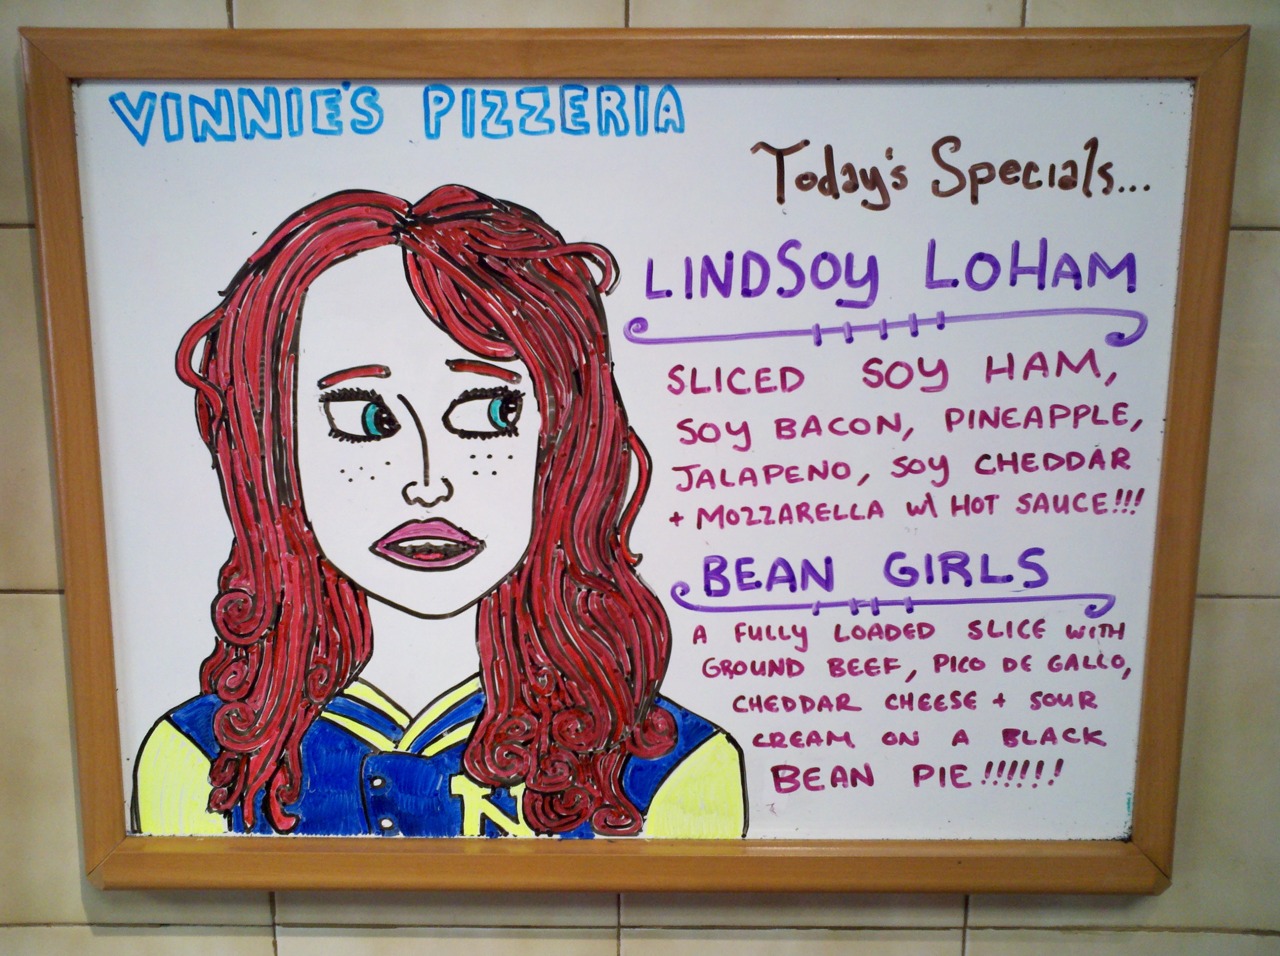 VINNIE'S PIZZERIA
Today's Specials...
LINDSOY LOHAM
SLICED SOY HAM,
SOY BACON, PINEAPPLE,
JALAPENO, SOY CHEDDAR
+ MOZZARELLA w\ HOT SAUCE!!!
BEAN GIRLS
A FULLY LOADED SLICE WITH
GROUND BEEF, PICO DE GALLO,
CHEDDAR CHEESE + SOUR
CREAM ON A BLACK
BEAN PIE!!!!!!
N